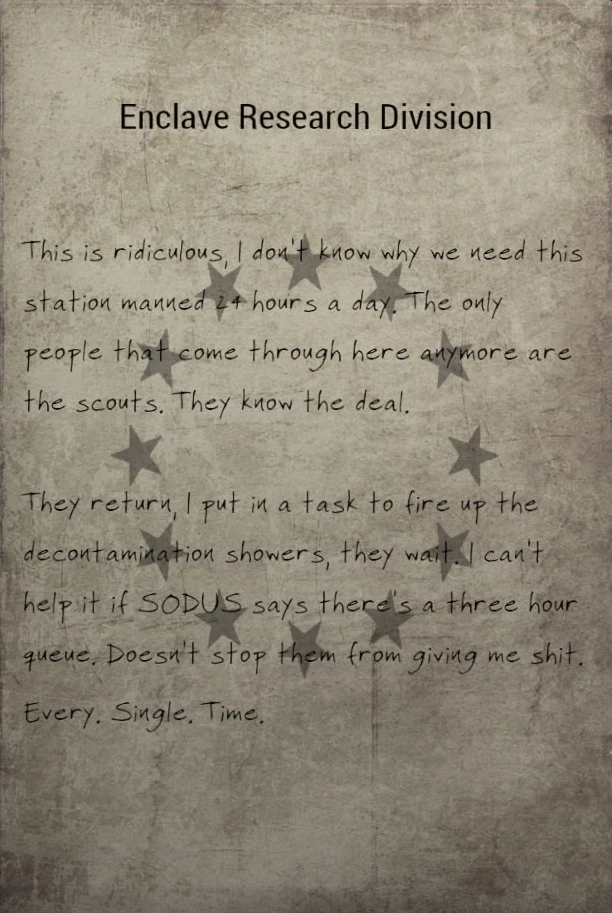 Enclave Research Division
This is ridiculous, I don't know why we need this
station manned 24 hours a day. The only
people that come through here anymore are
the scouts. They know the deal.
They return, I put in a task to fire up the
decontamination showers, they wait. I can't
help it if SODUS says there's a three hour
queue. Doesn't stop them from giving me shit.
Every. Single. Time.